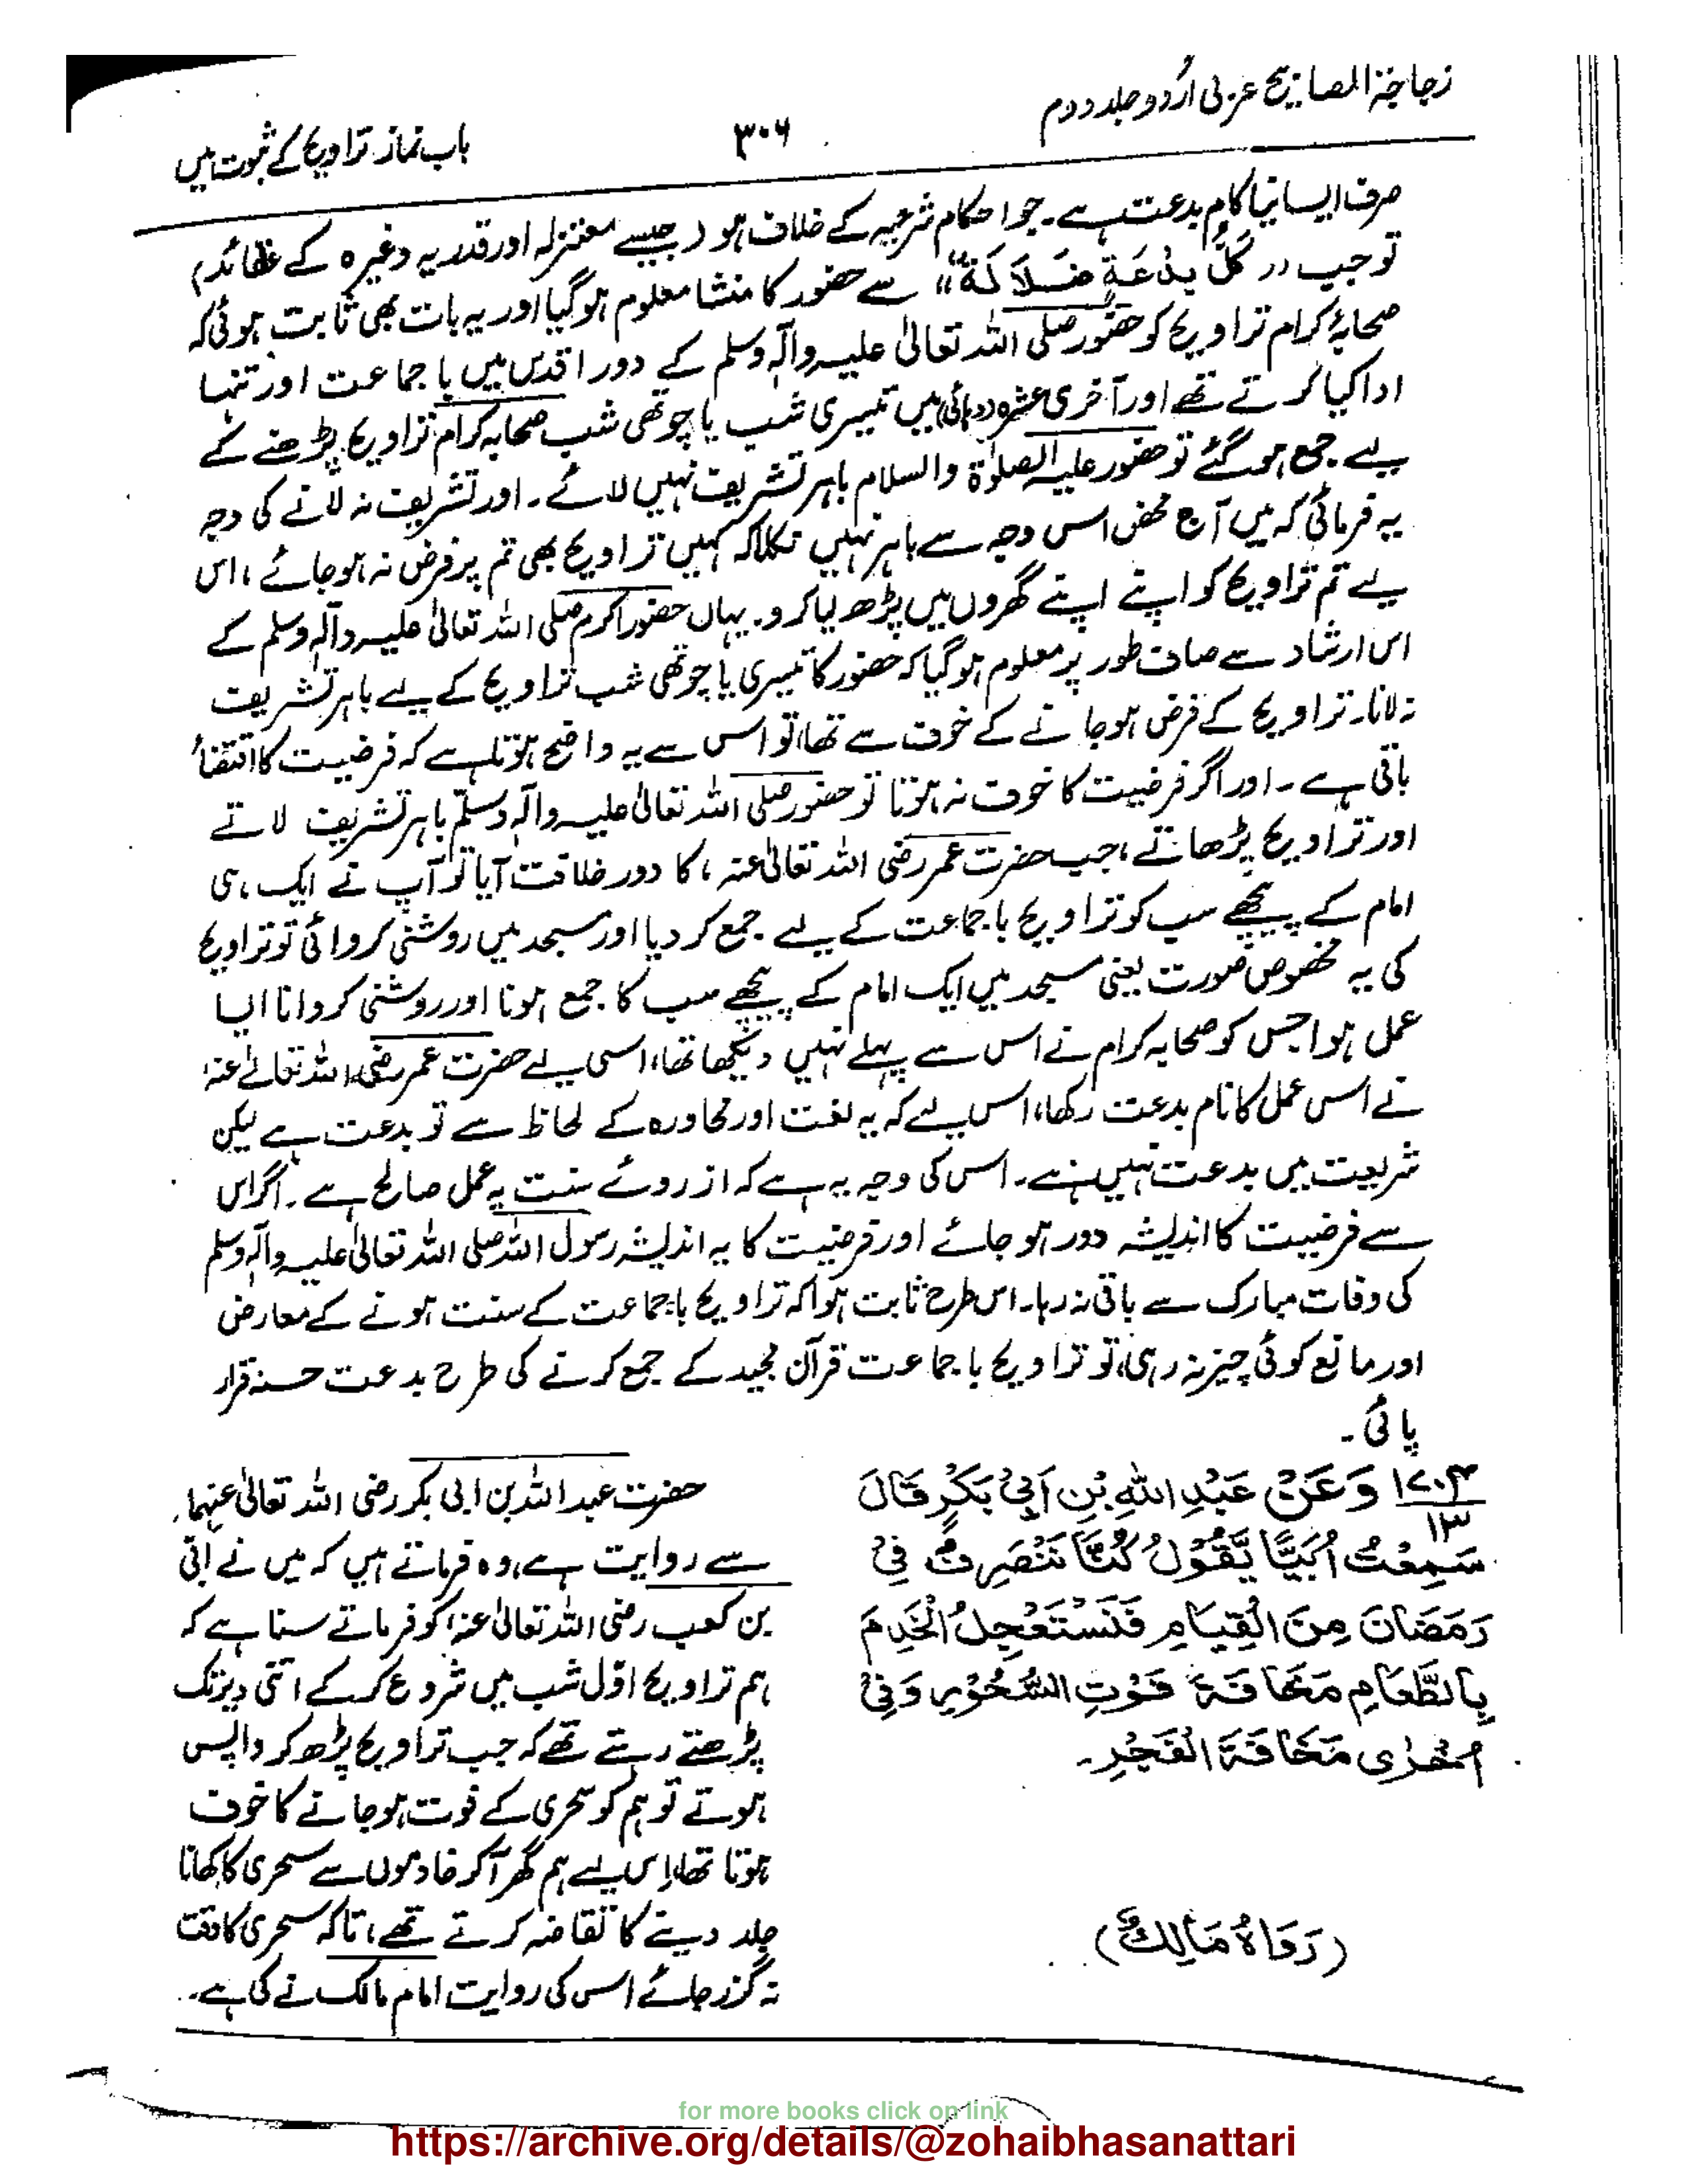 زجاجۃ المصابیح عربی اُردو جلد دوم
۳۰۶
باب نماز تراویح کے ثبوت میں
صرف ایسا نیا کام بدعت ہے۔ جو احکام شرعیہ کے خلاف ہو (جیسے معتزلہ اور قدریہ وغیرہ کے عقائد)
تو جب ’’ کُلُّ بِدْعَةٍ ضَلَالَةٌ‘‘ سے حضور کا منشا معلوم ہوگیا اور یہ بات بھی ثابت ہوئی کہ
صحابۂ کرام تراویح کو حضور صلی اللہ تعالیٰ علیہ وآلہ وسلم کے دور اقدس میں با جماعت اور تنہا
ادا کیا کرتے تھے اور آخری عشرہ (دہائی) میں تیسری شب یا چوتھی شب صحابہ کرام تراویح پڑھنے کے
لیے جمع ہو گئے تو حضور علیہ الصلوٰۃ والسلام باہر تشریف نہیں لائے۔ اور تشریف نہ لانے کی وجہ
یہ فرمائی کہ میں آج محض اس وجہ سے باہر نہیں نکلا کہ کہیں تراویح بھی تم پر فرض نہ ہوجائے، اس
لیے تم تراویح کو اپنے اپنے گھروں میں پڑھ لیا کرو۔ یہاں حضور اکرم صلی اللہ تعالیٰ علیہ وآلہ وسلم کے
اس ارشاد سے صاف طور پر معلوم ہوگیا کہ حضور کا تیسری یا چوتھی شب تراویح کے لیے باہر تشریف
نہ لانا۔ تراویح کے فرض ہو جانے کے خوف سے تھا، تو اس سے یہ واضح ہوتا ہے کہ فرضیت کا اقتضاً
باقی ہے۔ اور اگر فرضیت کا خوف نہ ہوتا تو حضور صلی اللہ تعالیٰ علیہ وآلہ وسلم باہر تشریف لاتے
اور تراویح پڑھاتے، جب حضرت عمر رضی اللہ تعالیٰ عنہ، کا دور خلافت آیا تو آپ نے ایک ہی
امام کے پیچھے سب کو تراویح با جماعت کے لیے جمع کر دیا اور مسجد میں روشنی کروائی تو تراویح
کی یہ مخصوص صورت یعنی مسجد میں ایک امام کے پیچھے سب کا جمع ہونا اور روشنی کروانا ایسا
عمل ہوا جس کو صحابہ کرام نے اس سے پہلے نہیں دیکھا تھا، اسی لیے حضرت عمر رضی اللہ تعالےٰ عنہ
نے اس عمل کا نام بدعت رکھا، اس لیے کہ یہ لغت اور محاورہ کے لحاظ سے تو بدعت ہے لیکن
شریعت میں بدعت نہیں ہے۔ اس کی وجہ یہ ہے کہ از روئے سنت یہ عمل صالح ہے۔ اگر اس
سے فرضیت کا اندیشہ دور ہو جائے اور فرضیت کا یہ اندیشہ رسول اللہ صلی اللہ تعالیٰ علیہ وآلہ وسلم
کی وفات مبارک سے باقی نہ رہا۔ اس طرح ثابت ہوا کہ تراویح با جماعت کے سنت ہونے کے معارض
اور مانع کوئی چیز نہ رہی، تو تراویح با جماعت قرآن مجید کے جمع کرنے کی طرح بدعت حسنہ قرار
پائی۔
۱۷۰۴ وَعَنْ عَبْدِ اللهِ بْنِ اَبِیْ بَكْرٍ قَالَ
۱۳
سَمِعْتُ اُبَيًّا يَّقُوْلُ كُنَّا نَنْصَرِفُ فِیْ
رَمَضَانَ مِنَ الْقِيَامِ فَنَسْتَعْجِلُ الْخَدِمَ
بِالطَّعَامِ مَخَافَةَ فَوْتِ السُّحُوْرِ وَفِیْ
اُخْرٰى مَخَافَةَ الْفَجْرِ۔
(رَوَاهُ مَالِكٌ)
حضرت عبداللہ بن ابی بکر رضی اللہ تعالیٰ عنہما
سے روایت ہے، وہ فرماتے ہیں کہ میں نے اُبی
بن کعب رضی اللہ تعالیٰ عنہ، کو فرماتے سنا ہے کہ
ہم تراویح اوّل شب میں شروع کرکے اتنی دیر تک
پڑھتے رہتے تھے کہ جب تراویح پڑھ کر واپس
ہوتے تو ہم کو سحری کے فوت ہوجانے کا خوف
ہوتا تھا، اس لیے ہم گھر آکر خادموں سے سحری کا کھانا
جلد دینے کا تقاضہ کرتے تھے، تاکہ سحری کا وقت
نہ گزر جائے اس کی روایت امام مالک نے کی ہے۔
for more books click on link
https://archive.org/details/@zohaibhasanattari